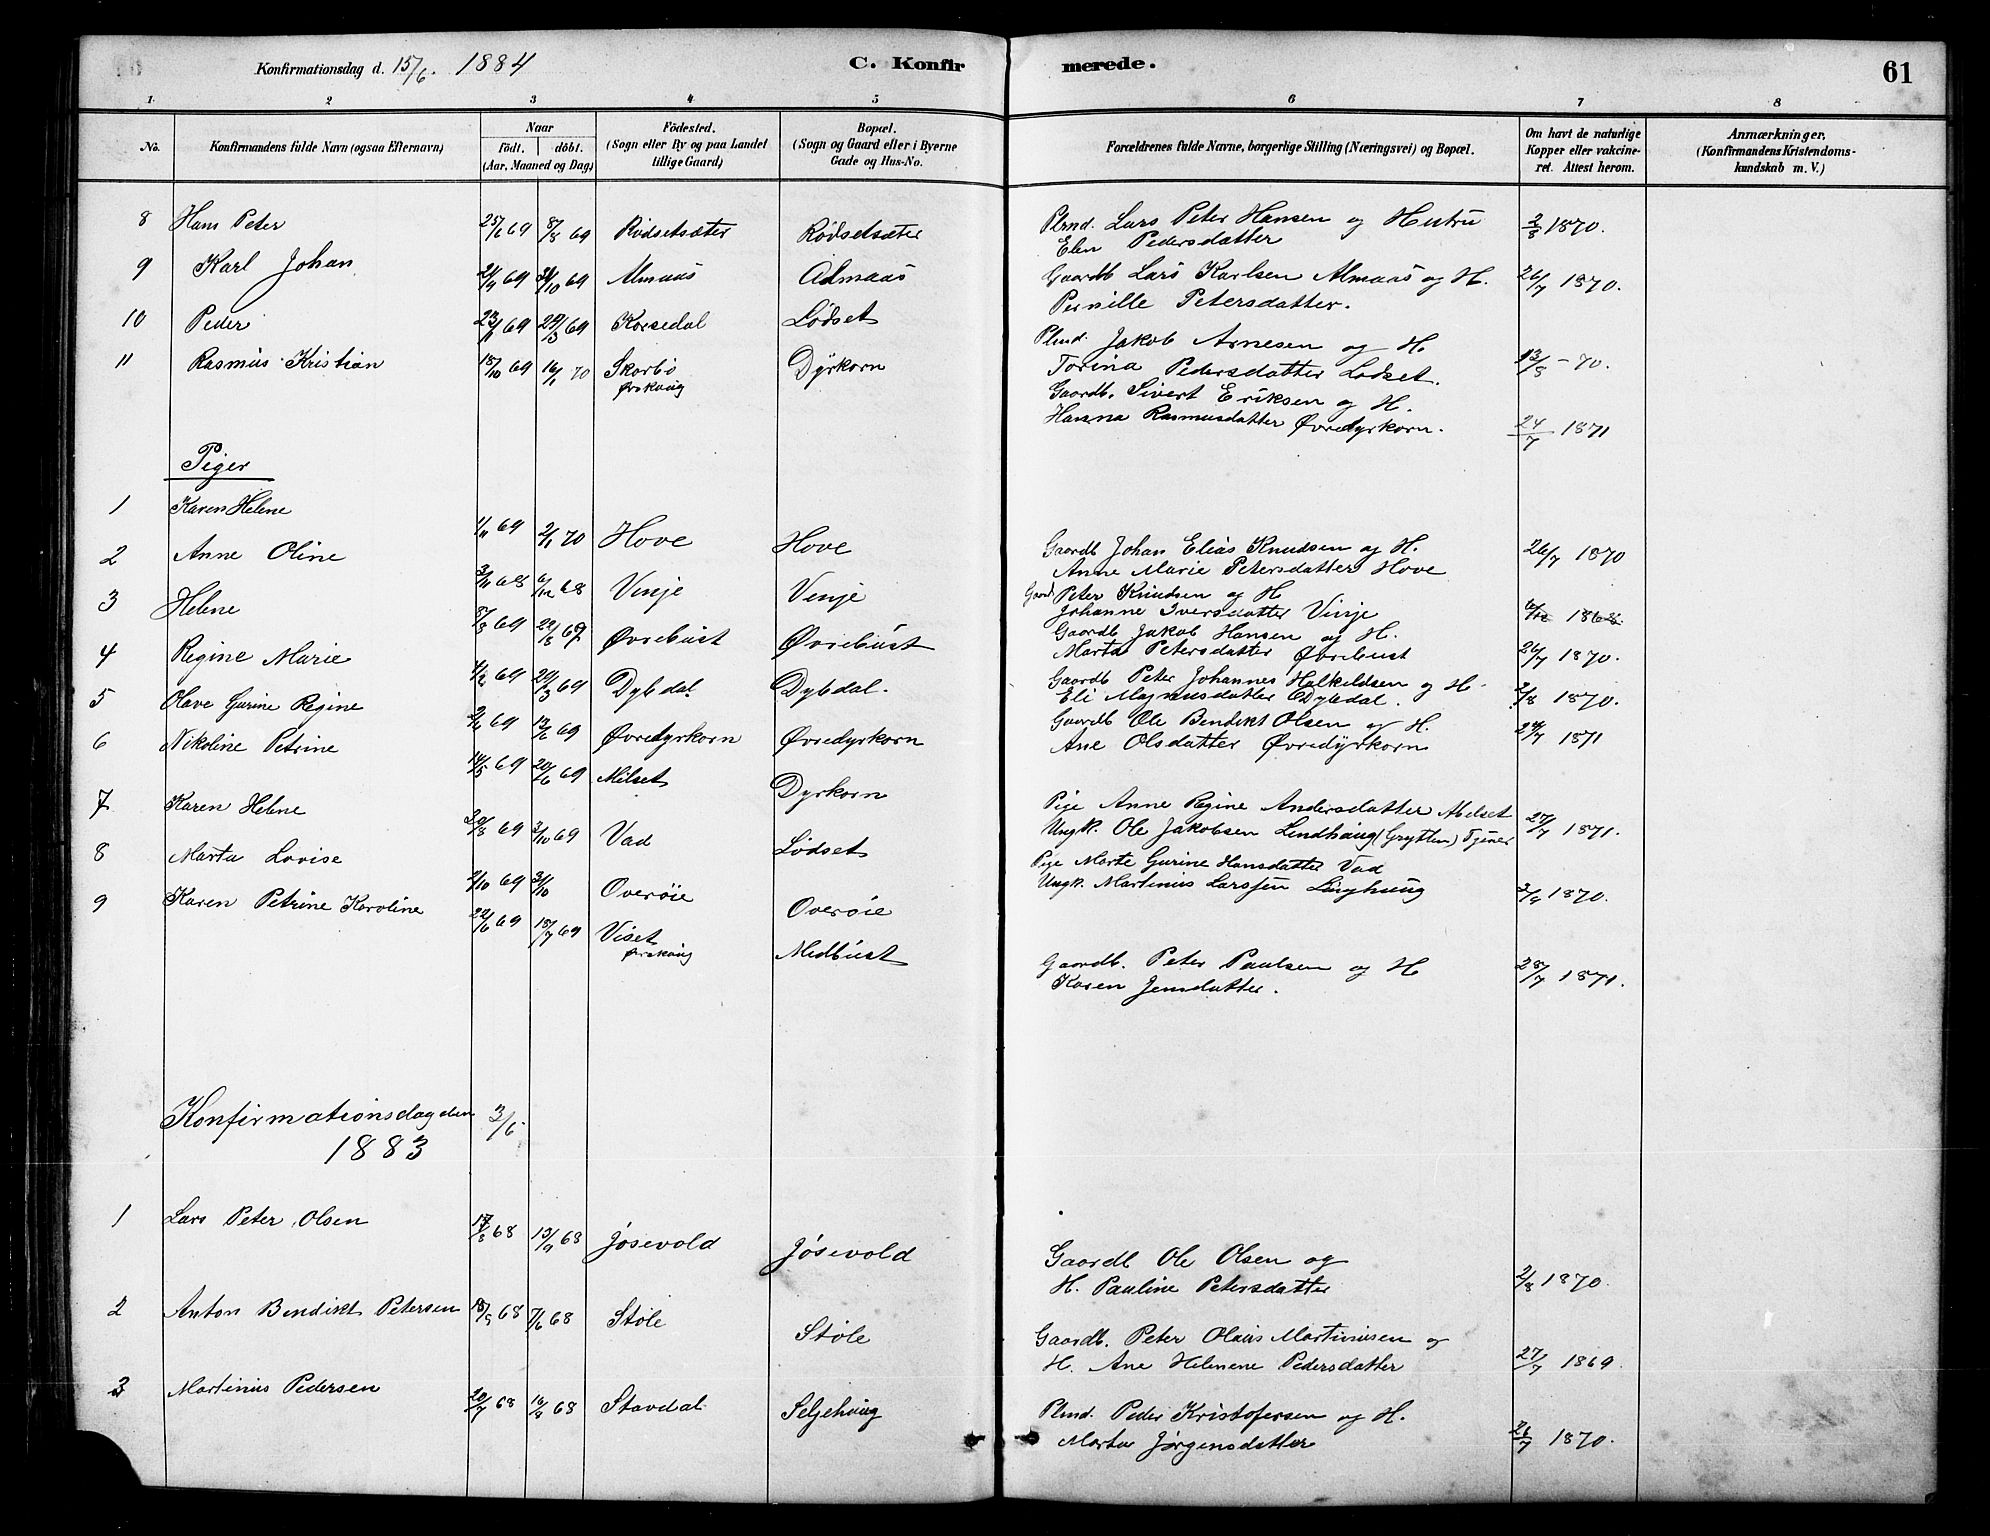 Konfirmationsdag d. 15/6. 1884 C. Konfir merede. 61
1 2 3 4 5 6 7 8
No. Konfirmandens fulde Navn (ogsaa Efternavn) Naar födt. döbt. (Aar, Maaned og Dag) Födested. (Sogn eller By og paa Landet tillige Gaard) Bopæl. (Sogn og Gaard eller i Byerne Gade og Hus-No. Forældrenes fulde Navne, borgerlige Stilling (Næringsvei) og Bopæl. Om havt de naturlige Kopper eller vakcineret. Attest herom. Anmærkninger, (Konfirmandens Kristendomskundskab m. V.)
8 Hans Peter 25/6 69 8/8 69 Rödsetsæter Rødsetsæter Plmd. Lars Peter Hansen og Hustru 2/8 1870.
Elen Pedersdatter
9 Karl Johan 21/9 69 31/10 69 Almaas Almaas Gaardb Lars Karlsen Almaas og H. 26/7 1870.
Pernille Petersdatter.
10 Peder 69 69 Korsedal Lödset Plmd. Jakob Arnesen og H. 13/8 - 70.
Torina Pedersdatter Lödset.
11 Rasmus Kristian 18/10 69 16/1 70 Skorbö Dyrkorn Gaardb. Sivert Eriksen og H.
Ørskoug Hanna Rasmusdatter Øvredyrkorn. 24/7 1871
Piger
1 Karen Helene 1/11 69 2/1 70 Hove Hove Gaardb Johan Elias Knudsen og H. 26/7 1870
Anne Marie Petersdatter Hove
2 Anne Oline 3/11 68 6/12 68 Vinje Vinje Gaard Peter Knudsen og H
Johanne Iversdatter Vinje 6/12 1868.
3 Helene 8/8 69 22/8 69 Øvrebust Øvrebust Gaardb Jakob Hansen og H.
Marta Petersdatter Øvrebust 26/7 1870.
4 Regine Marie 4/2 69 29/3 69 Dybdal Dybdal. Gaardb Peter Johannes Halkildsen og H.
Eli Magnusdatter Dybdal. 2/8 1870.
5 Olave Gurine Regine 69 69 Øvredyrkorn Øvredyrkorn Gaardb Ole Bendikt Olsen og H.
Ane Olsdatter Øvredyrkorn 24/7 1871
6 Nikoline Petrine 14/5 69 20/6 69 Milset Dyrkorn Pige Anne Regine Andersdatter
Ungk. Ole Jakobsen Lindhaug (Grytten) Tjener 27/7 1871.
7 Karen Helene 69 3/10 69 Vad Lödset Pige Marte Gurine Hansdatter Vad
Ungk. Martinus Larssen 1870.
8 Marta Lovise 2/10 69 31/10 Overöie Overöie
9 Karen Petrine Karoline 22/6 69 18/7 69 Viset Medbust Gaardb. Peter Paulsen og H 28/7 1871.
Ørskoug Karen Jensdatter.
Konfirmationsdag den 3/6
1883
1 Lars Peter Olsen 17/8 68 13/9 68 Jøsevold Jøsevold Gaardb Ole Olsen og
H. Pauline Petersdatter 2/8 1870.
2 Anton Bendikt Petersen 68 7/6 68 Støle Støle Gaardb. Peter Olaus Martinusen og
H. Ane Helenene Pedersdatter 27/7 1869.
3 Martinus Pedersen 20/7 68 16/8 68 Stavdal Seljehaug Plmd. Peder Kristofersen og H.
Marta Jørgensdatter 26/7 1870.